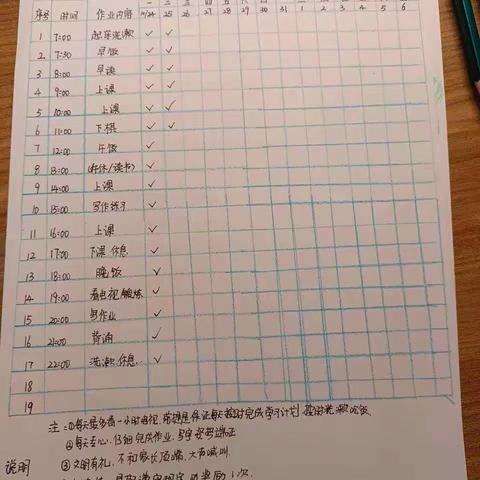 一 二 三 四 五 六 日 一 二 三 四 五 六
序号 时间 作业内容 10/24 25 26 27 28 29 30 31 1 2 3 4 5 6
1 7:00 起床洗漱 ✓ ✓
2 7:30 早饭 ✓ ✓
3 8:00 早读 ✓ ✓
4 9:00 上课 ✓ ✓
5 10:00 上课 ✓ ✓
6 11:00 下棋 ✓ ✓
7 12:00 午饭 ✓
8 13:00 (午休/读书) ✓
9 14:00 上课 ✓
10 15:00 写作练习 ✓
11 16:00 上课 ✓
12 17:00 下课 休息 ✓
13 18:00 晚饭 ✓
14 19:00 看电视 锻炼 ✓
15 20:00 写作业 ✓
16 21:00 背诵 ✓
17 22:00 洗漱 休息 ✓
18
19
注:①每天最多看一小时电视,前提是保证每天按时完成学习计划 按时洗漱吃饭
②每天专心,仔细完成作业,写字安静端正
说明 ③文明有礼,不和家长顶嘴,大声喊叫
奖励1次